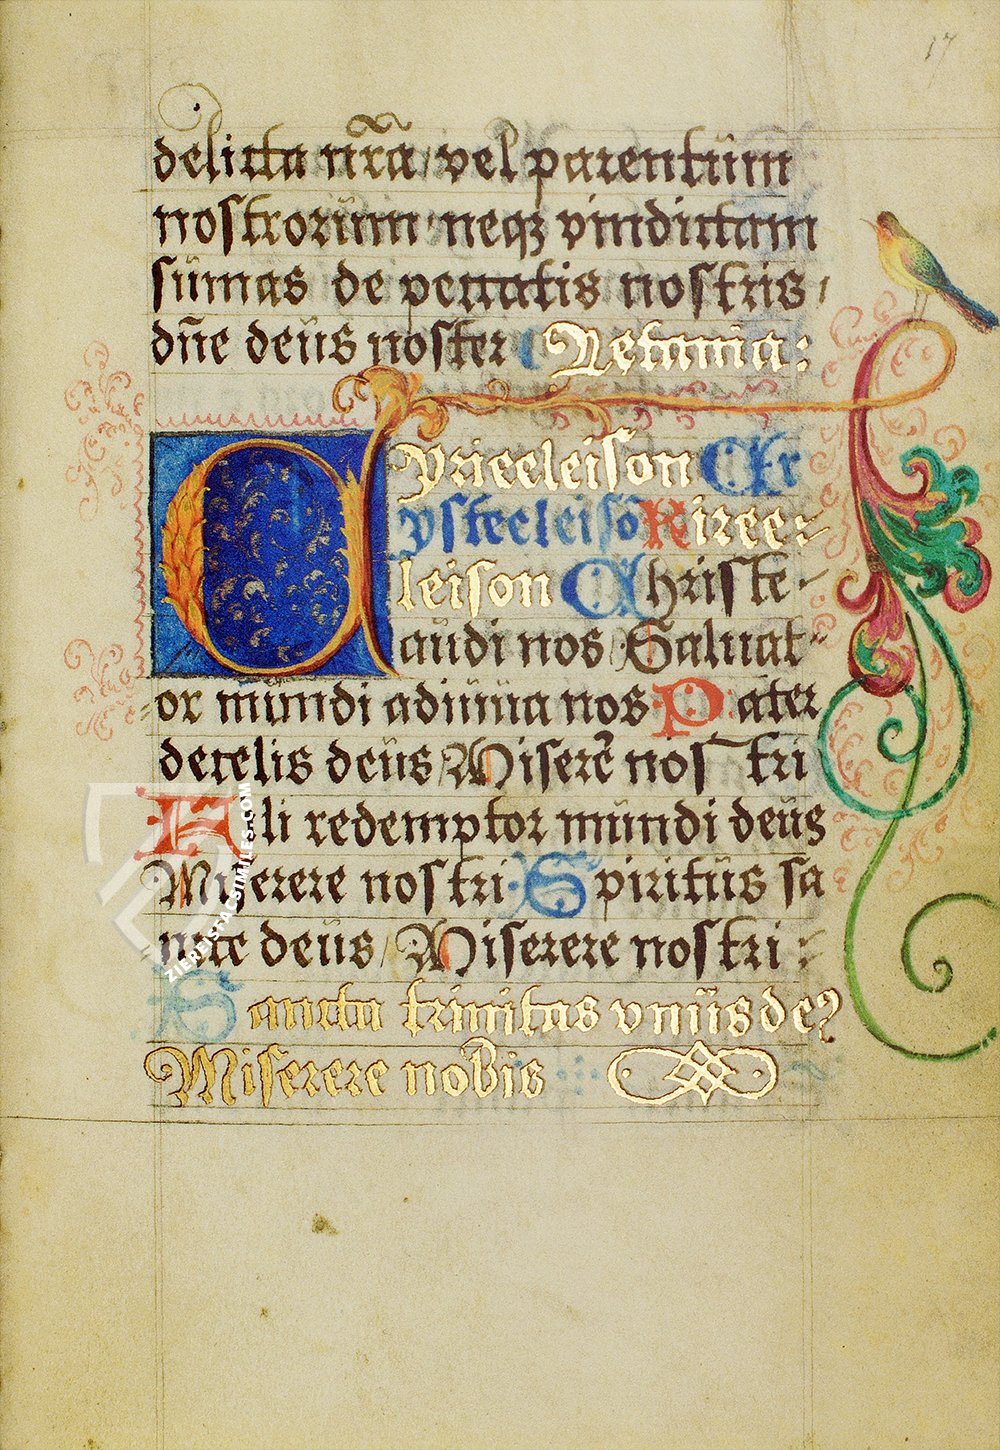 17
delicta nr̃a vel parentum
nostrorum neqꝫ vindictam
sumas de peccatis nostris
dñe deus noster Letania:
Kyrieeleison Chr
ysteeleiso Kiree:
leison Christe
audi nos Saluat
or mundi adiuua nos Pater
decelis deus Miserẽ nos tri
Fili redemptor mundi deus
Miserere nostri Spiritus sa
ncte deus Miserere nostri:
Sancta trinitas vnus de
Miserere nobis
ZIEREISFACSIMILES.COM